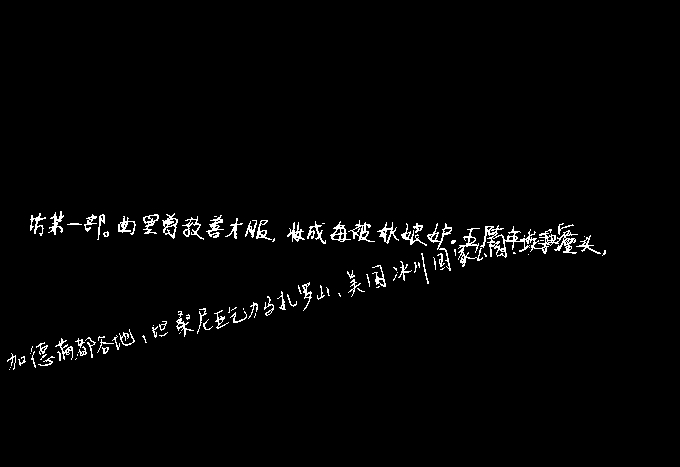 坊第一部。曲罢曾教善才服，妆成每被秋娘妒。五陵年少争缠头，
加德满都各地，坦桑尼亚乞力马扎罗山、美国冰川国家公园、埃